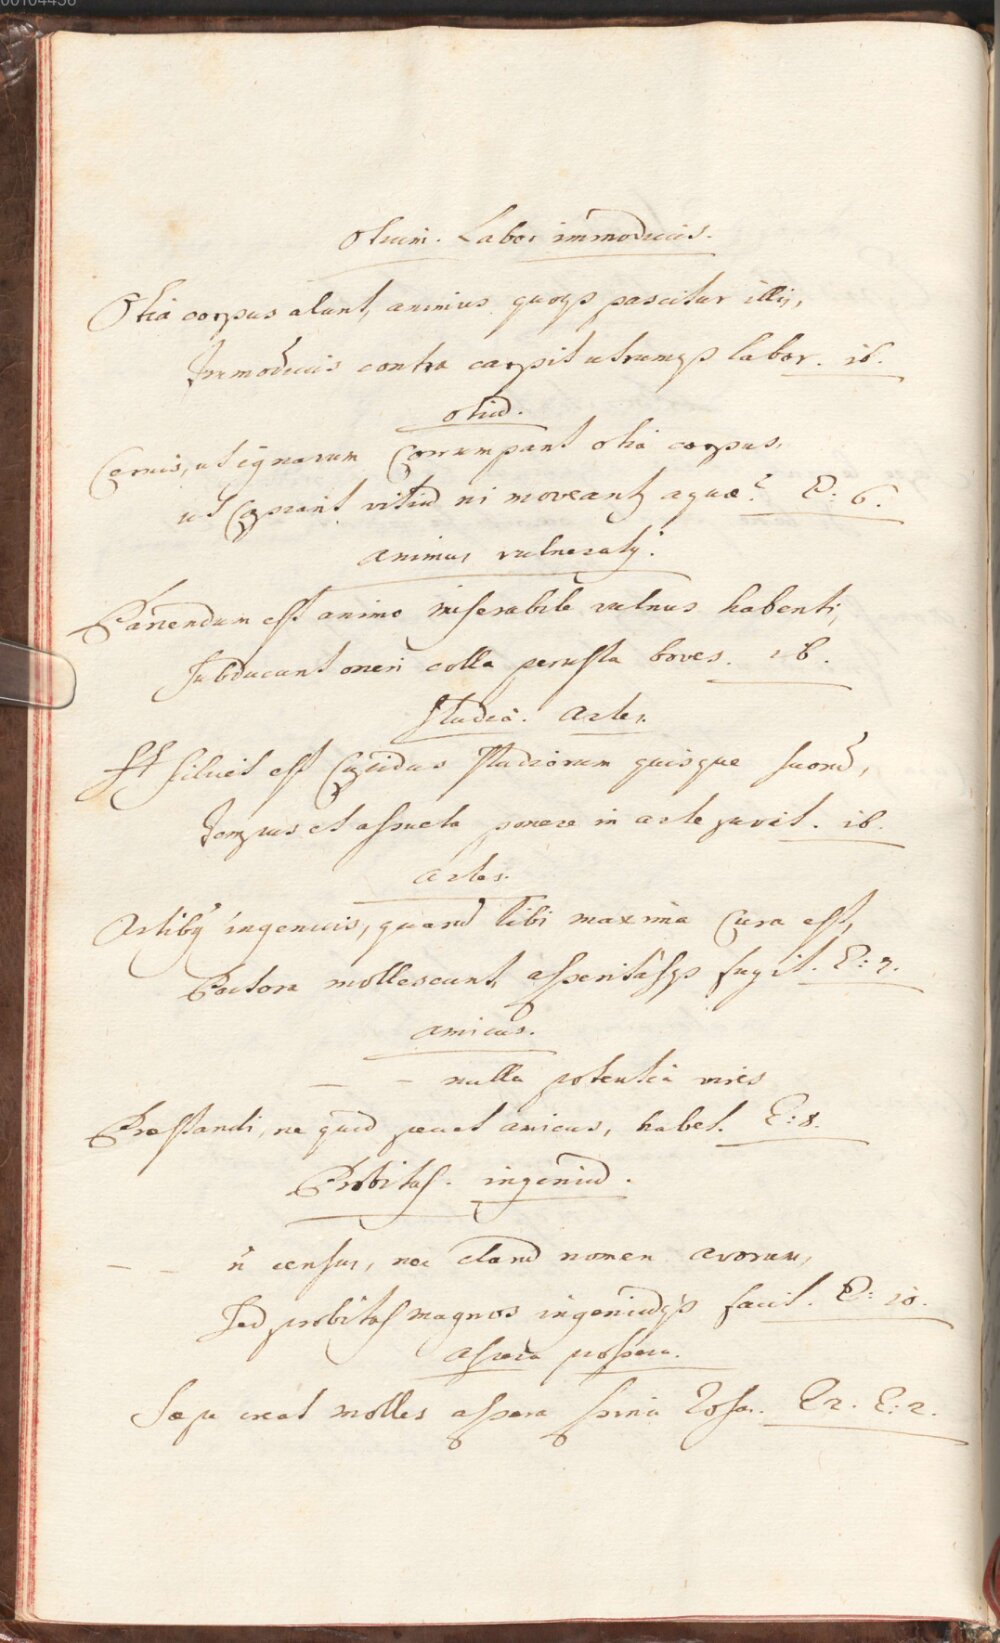 00104436
Otium. Labor immodicus.
Otia corpus alunt, animus quoqꝫ pascitur illis,
Immodicus contra carpit utrumqꝫ labor. ib.
otiũ.
Cernis, ut ignavum Corrumpant otia corpus,
ut Capiant vitiũ ni moveantꝫ aquæ? E: 6.
animus vulneratꝰ.
Parcendum est animo miserabile vulnus habenti,
subducunt oneri colla perusta boves. ib.
studia. artes.
Scilicet est Cupidus studiorum quisque suorũ,
Tempus et assueta ponere in arte juvat. ib.
artes.
Artibꝰ ingenuis, quarũ tibi maxima Cura est,
Pectora mollescunt, asperitasqꝫ fugit. E: 7.
amicus.
– – nulla potentia vires
Præstandi, ne quid pecet amicus, habet. E: 8.
Probitas. ingeniũ.
– – ñ census, nec clarũ nomen avorum,
Sed probitas magnos ingeniũqꝫ facit. E: 10.
aspera prospera.
Sæpe creat molles aspera spina rosas. E: 2.